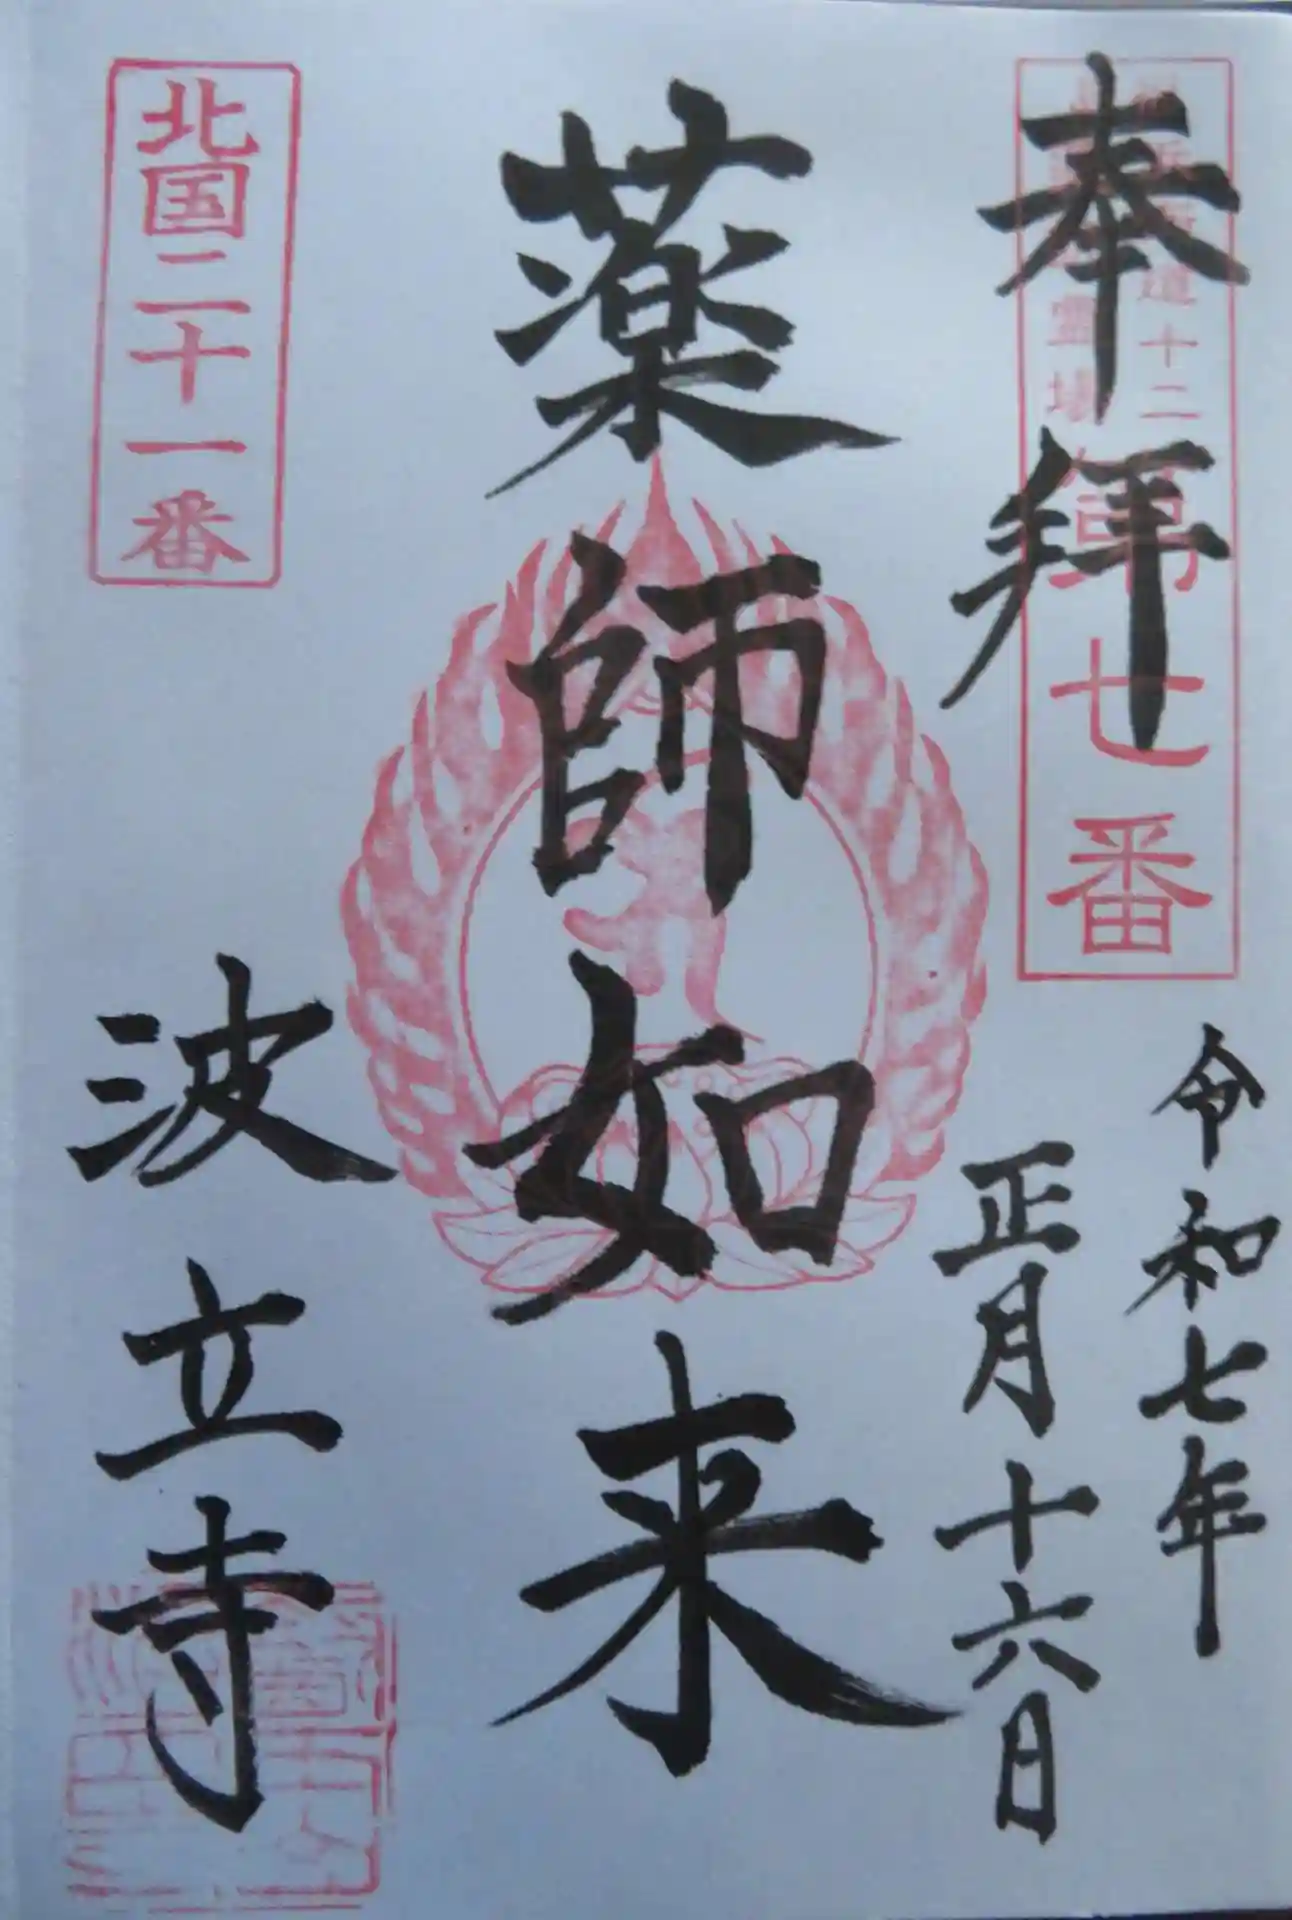 奉拝
道十二
霊場
第七番
令和七年
正月十六日
薬師如来
北国二十一番
波立寺